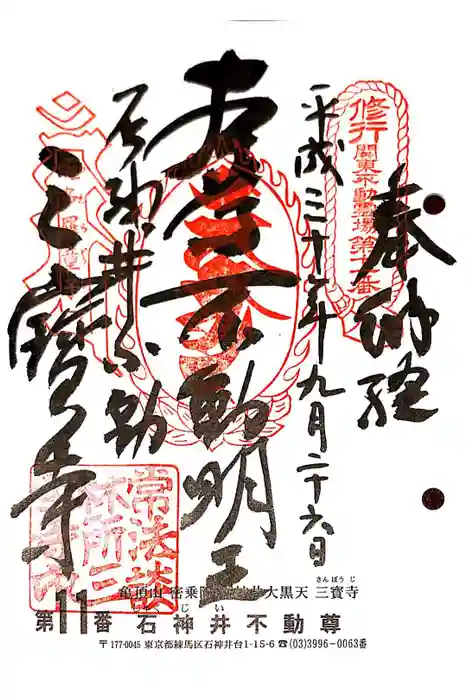 奉納経
修行
関東不動霊場第十一番
平成三十年九月二十六日
大聖不動明王
石神井不動
三寳寺
常法談
林所三
亀頂山 密乗院 大黒天 三寳寺
さんぽうじ
第11番 石神井不動尊
じい
〒177-0045 東京都練馬区石神井台1-15-6 ☎(03)3996-0063番